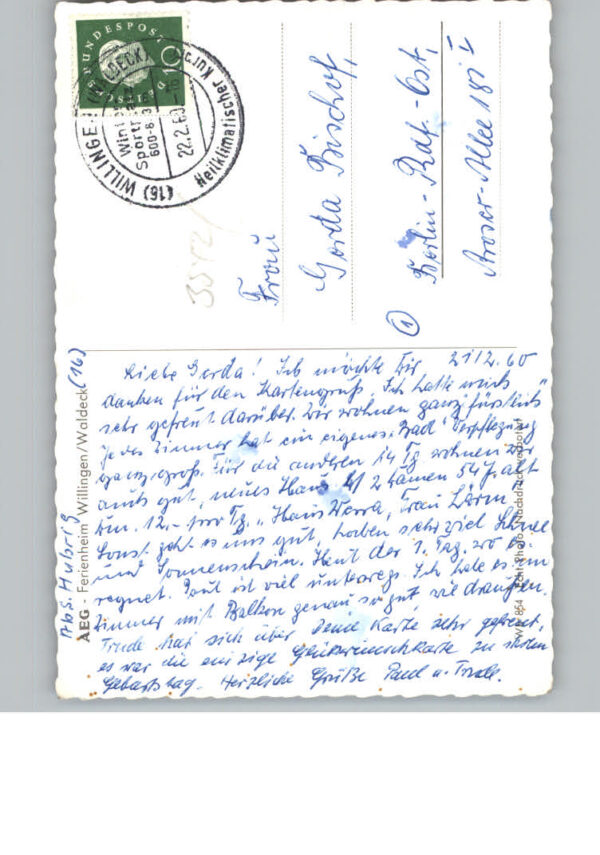 DEUTSCHE BUNDESPOST
10
(16) WILLINGEN (WALDECK)
Heilklimatischer Kurort
Winter
Sport
600-8
22.2.60
3572
Frau
Gerda Bischof,
① Berlin-Rdf.-Ost,
Aroser-Allee 181 I
Abs. Hubrig (16)
AEG - Ferienheim Willingen/Waldeck
21/2.60
Liebe Gerda! Ich möchte Dir
danken für den Kartengruß. Ich hatte mich
sehr gefreut darüber. Wir wohnen ganz „fürstlich"
Jedes Zimmer hat ein eigenes „Bad" Verpflegung
ganz groß. Für die anderen 14 Tg wohnen wir
auch gut, neues Haus 2 Damen 54 J. alt
12,- pro Tg. „Haus Werra, Frau
Sonst geht es uns gut, haben sehr viel Schnee
und Sonnenschein. Heut der 1. Tag. wo es
regnet. Paul ist viel unterwegs. Ich habe es im
Zimmer mit Balkon genau so gut wie draußen.
Trude hat sich über Deine Karte sehr gefreut,
es war die einzige Glückwunschkarte zu ihrem
Geburtstag. Herzliche Grüße Paul u. Trude.